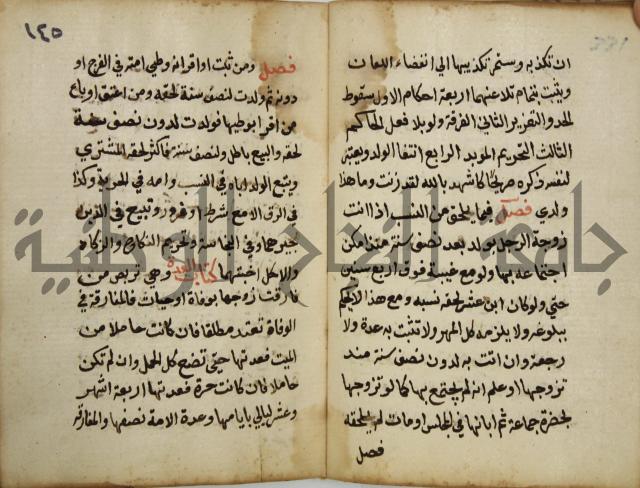 ان تكذبه وستمر تكذيبها الي انقضاء اللعان
ويثبت بتمام تلاعنهما اربعة احكام الاول سقوط
الحد والتعزير الثاني الفرقة ولو بلا فعل الحاكم
الثالث التحريم الموبد الرابع انتفا الولد ويعتبر
لنفيه ذكره صريحا كاشهد بالله لقد زنت وما هذا
ولدي فصل فيما يلحق من النسب اذا اتت
زوجة الرجل بولد بعد نصف سنة منذ امكن
اجتماعه بها ولو مع غيبته فوق اربع سنين
حتي ولو كان ابن عشر لحقه نسبه ومع هذا لا يحكم
ببلوغه ولا يلزمه كل المهر ولا تثبت به عدة ولا
رجعة وان اتت به لدون نصف سنة منذ
تزوجها او علم انه لم يجتمع بها كما لو تزوجها
بحضرة جماعة ثم ابانها في المجلس او مات لم يلحقه
فصل
١٤٥
فصل ومن ثبت او اقر انه وطي امته في الفرج او
دونه ثم ولدت لنصف سنة لحقه ومن اعتق او باع
من اقر بوطيها فولدت لدون نصف سنة
لحقه والبيع باطل ولنصف سنة فاكثر لحقه المشتري
ويتبع الولد اباه في النسب وامه في الحرية وكذا
في الرق الا مع شرط او غرور وتبع في الدين
خيرهما وفي النجاسة وتحريم النكاح والزكاة
والاكل اخبثهما كتاب العدة وهي تربص من
فارقت زوجها بوفاة او حياة فالمفارقة في
الوفاة تعتد مطلقا فان كانت حاملا من
الميت فعدتها حتي تضع كل الحمل وان لم تكن
حاملا فان كانت حرة فعدتها اربعة اشهر
وعشر ليالي بايامها وعدة الامة نصفها والمفارقة
جامعة النجاح الوطنية